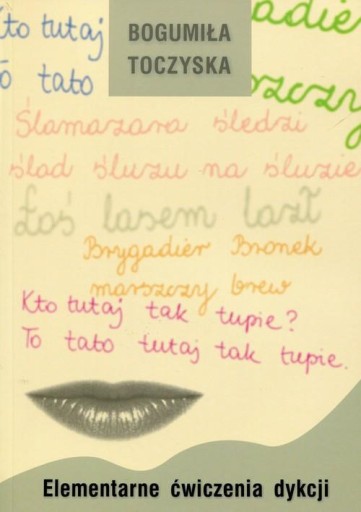 Kto tutaj
adier
To tato
szczy
BOGUMIŁA
TOCZYSKA
Ślamazara śledzi
ślad śluzu na śluzie
Łoś lasem lazł
Brygadier Bronek
marszczy brew
Kto tutaj tak tupie?
To tato tutaj tak tupie.
Elementarne ćwiczenia dykcji